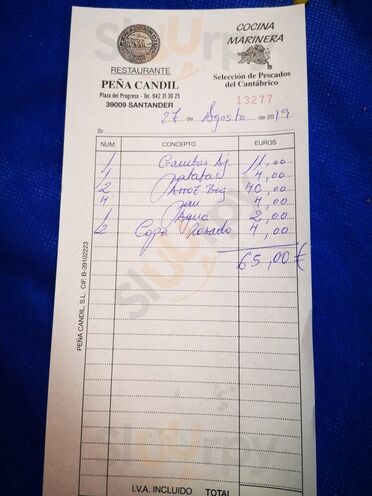 COCINA
MARINERA
RESTAURANTE
PEÑA CANDIL
Plaza del Progreso - Tel. 942 31 30 25
39009 SANTANDER
Selección de Pescados
del Cantábrico
13277
27 de Agosto de 2019
Sr.
NUM. CONCEPTO EUROS
1 Gambas aj 11,00
1 patatas 4,00
2 Arroz Bog 40,00
4 pan 4,00
1 Agua 2,00
2 Copa Rosado 4,00
65,00€
PEÑA CANDIL, S.L. CIF. B-39102223
I.V.A. INCLUIDO TOTAL
Sluurpy
Sluurpy
Sluurpy